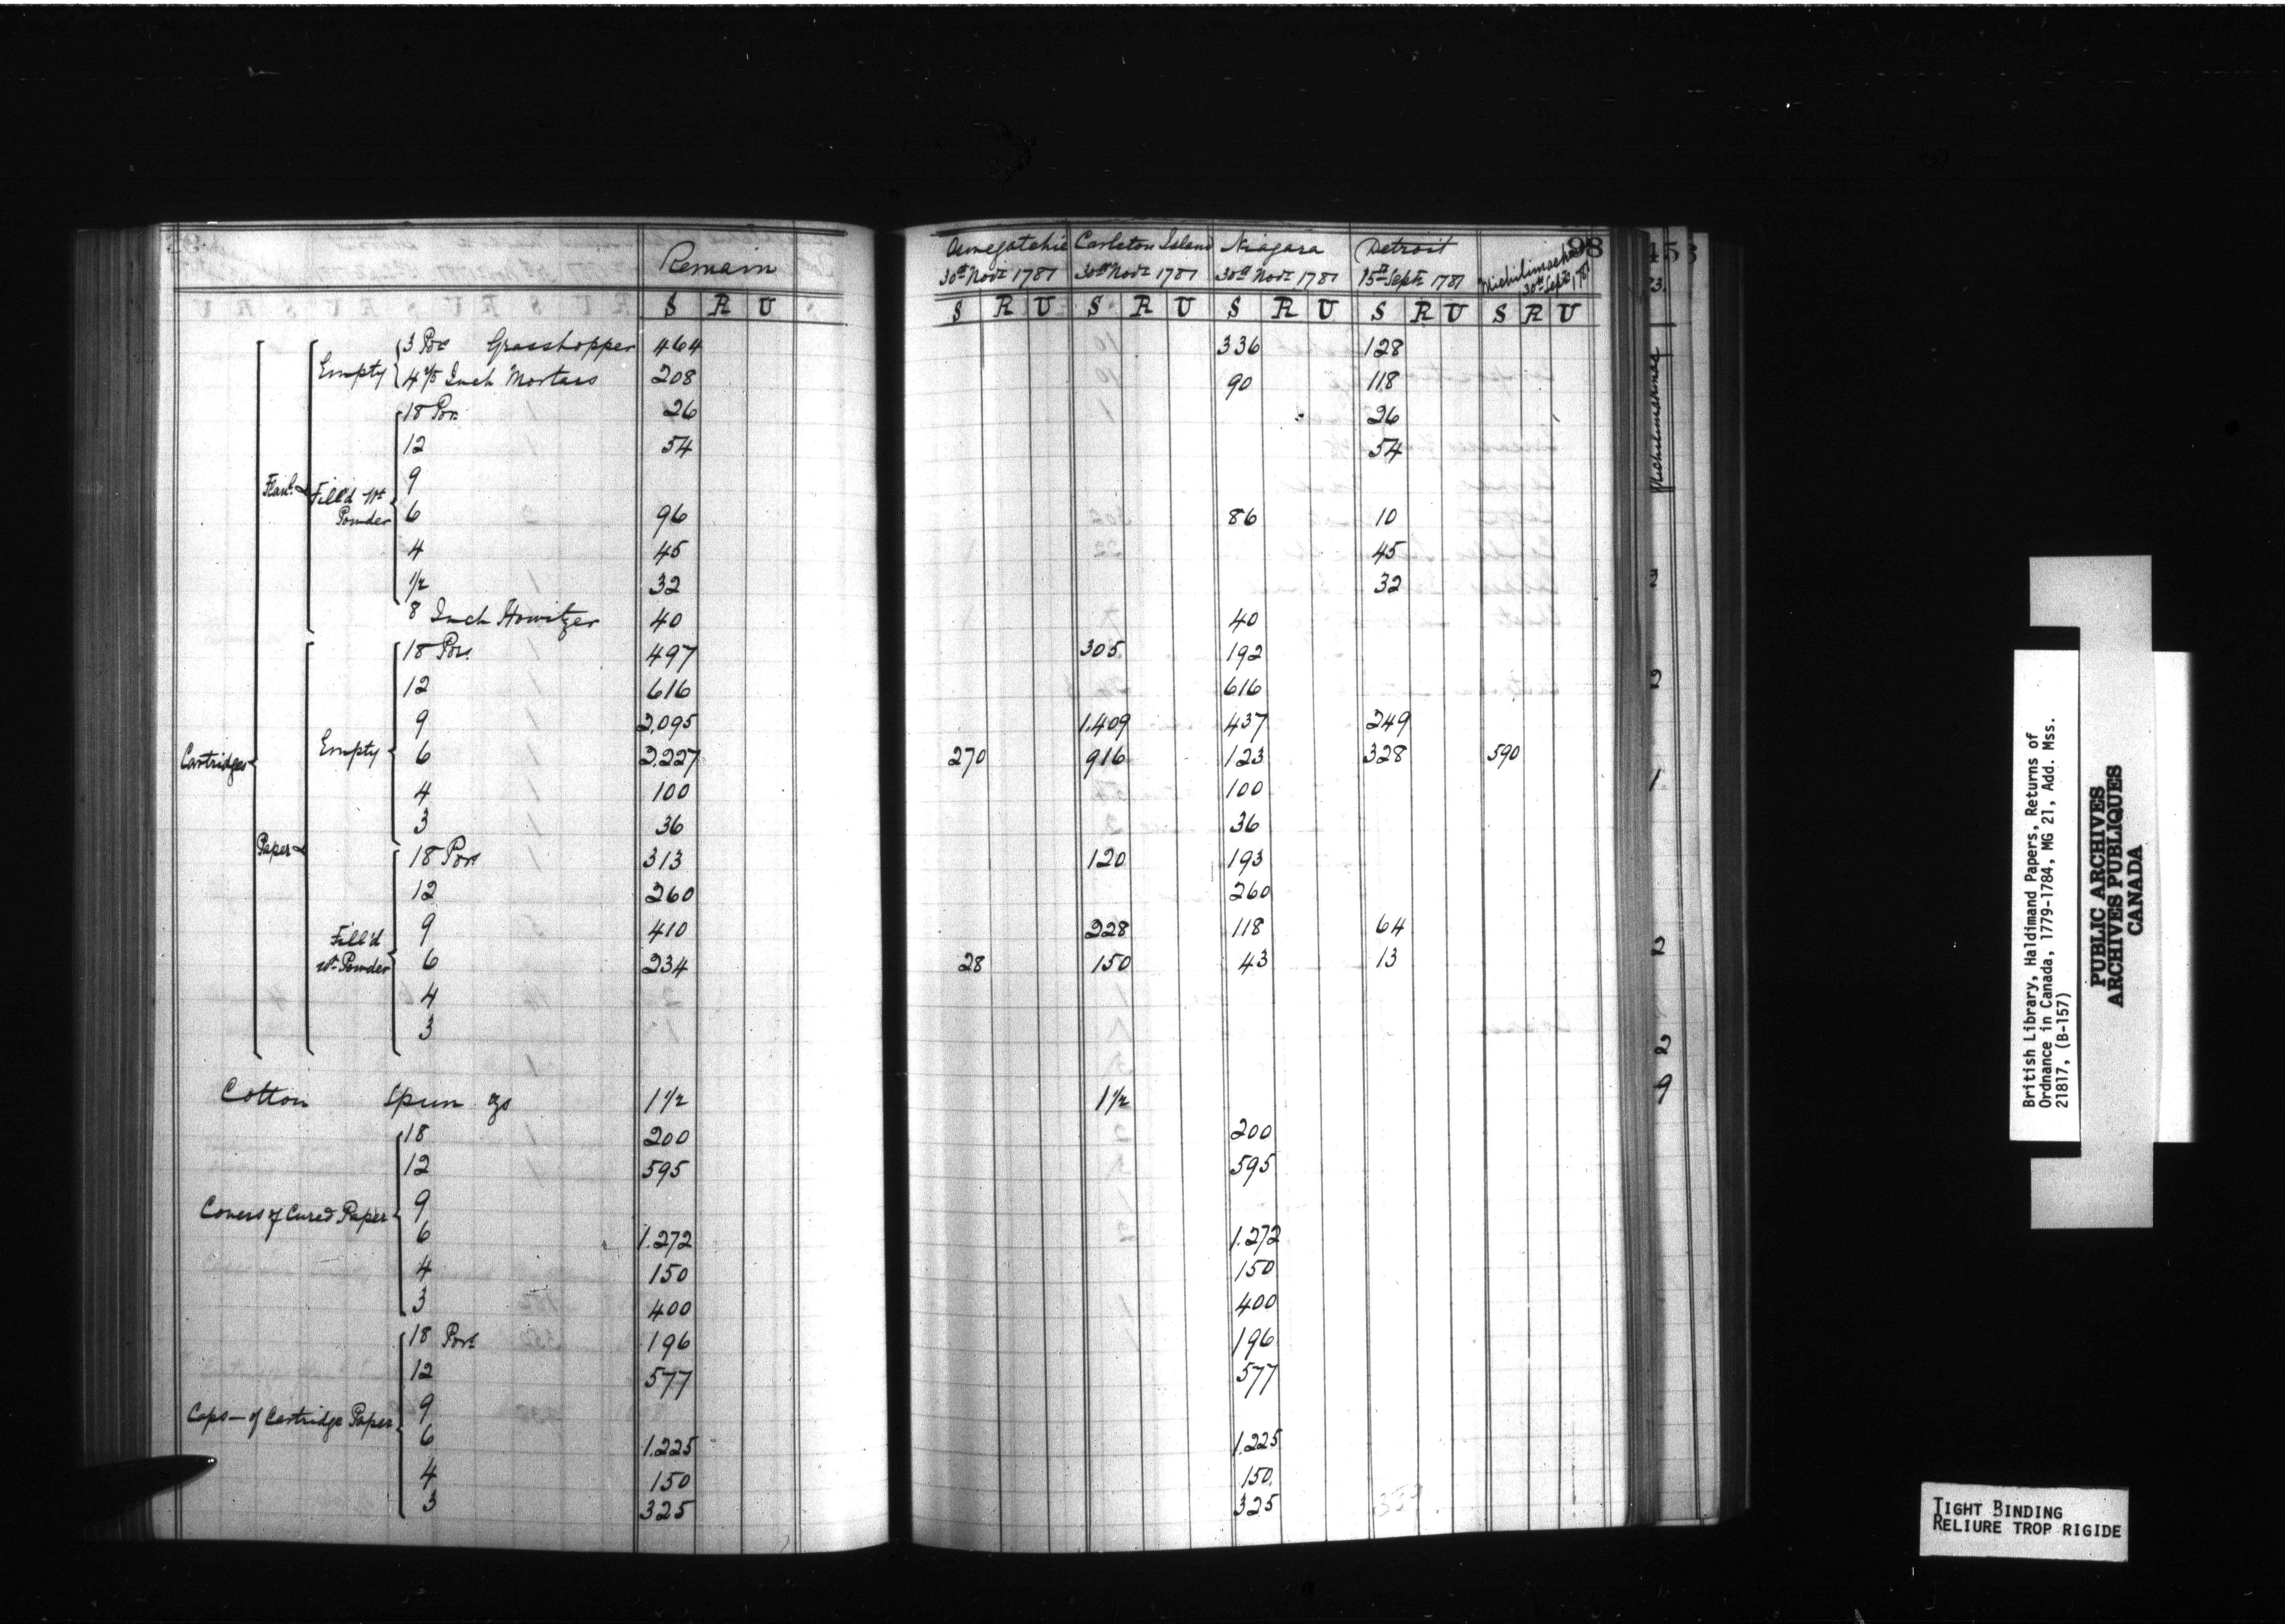 Remain
Oswegatchie Carleton Island Niagara Detroit Michilimackinac 98 453
30th Novr 1781 30th Novr 1781 30th Novr 1781 15th Septr 1781 30th Septr 1781 73.
S R U S R U S R U S R U S R U S R U
Empty 3 Pors Grasshopper 464 336 128
4 2/5 Inch Mortars 208 90 118
18 Por. 26 26
12 54 54
9
Flanl. Fill'd wt Powder 6 96 86 10
4 45 45
1/2 32 32
8 Inch Howitzer 40 40
18 Pors. 497 305 192
12 616 616
9 2,095 1.409 437 249
Cartridges Empty 6 2.227 270 916 123 328 590
4 100 100
3 36 36
Paper 18 Pors 313 120 193
12 260 260
9 410 228 118 64
Fill'd wt Powder 6 234 28 150 43 13
4
3
Cotton Spun 1 1/2 1 1/2
18 200 200
12 595 595
Covers of Cured Paper 9
6 1.272 1.272
4 150 150
3 400 400
18 Pors 196 196
12 577 577
Caps — of Cartridge Paper 9
6 1.225 1.225
4 150 150.
3 325 325
Michilimakinac
2
2
1
2
2
9
British Library, Haldimand Papers, Returns of
Ordnance in Canada, 1779-1784, MG 21, Add. Mss.
21817, (B-157)
PUBLIC ARCHIVES
ARCHIVES PUBLIQUES
CANADA
TIGHT BINDING
RELIURE TROP RIGIDE